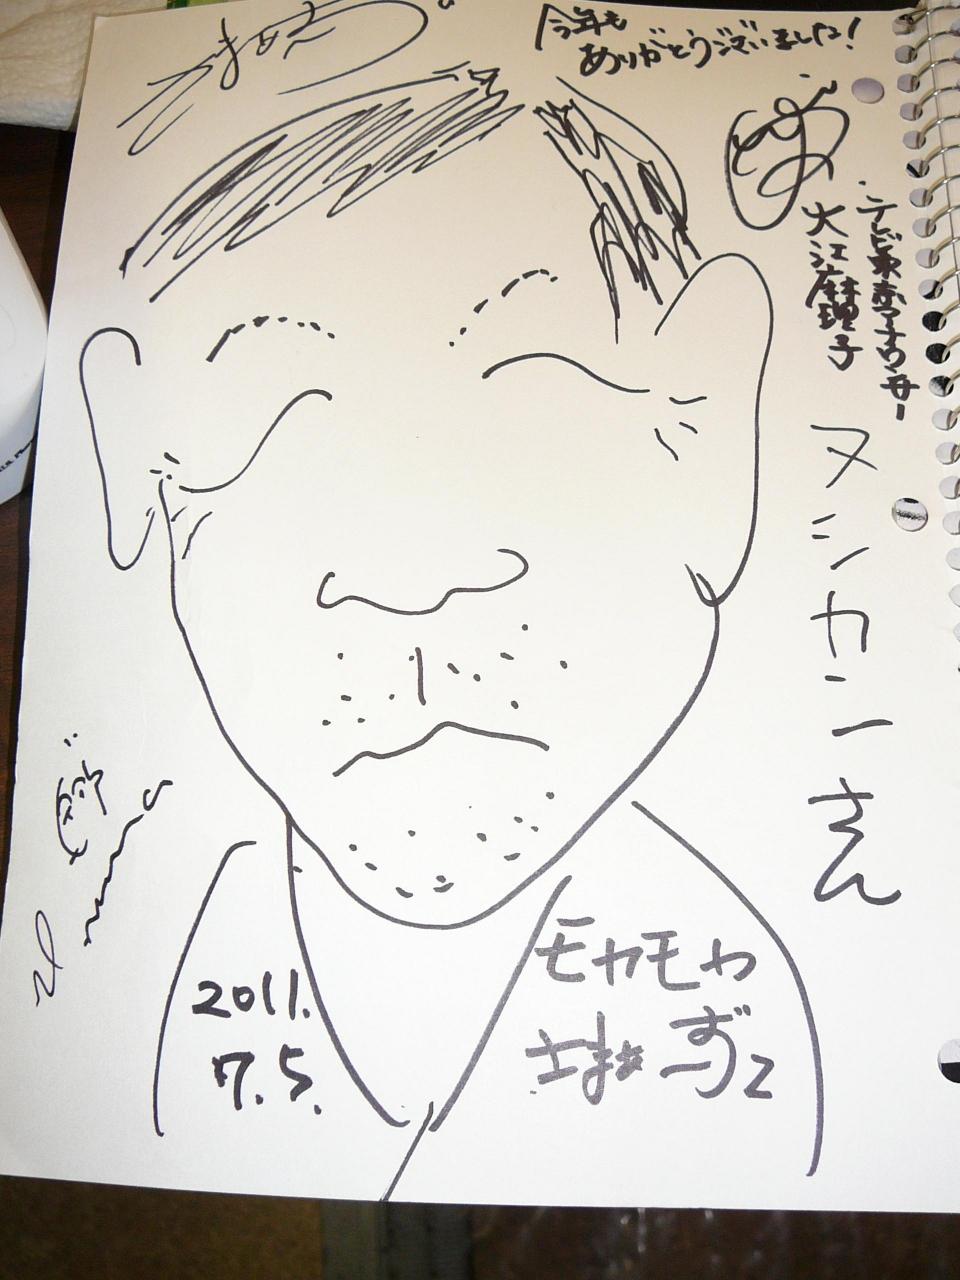 今年も
ありがとうございました!
テレビ東京アナウンサー
大江麻理子
ヌシカンさん
2011.
7.5.
モヤモヤ
さまぁ~ず2